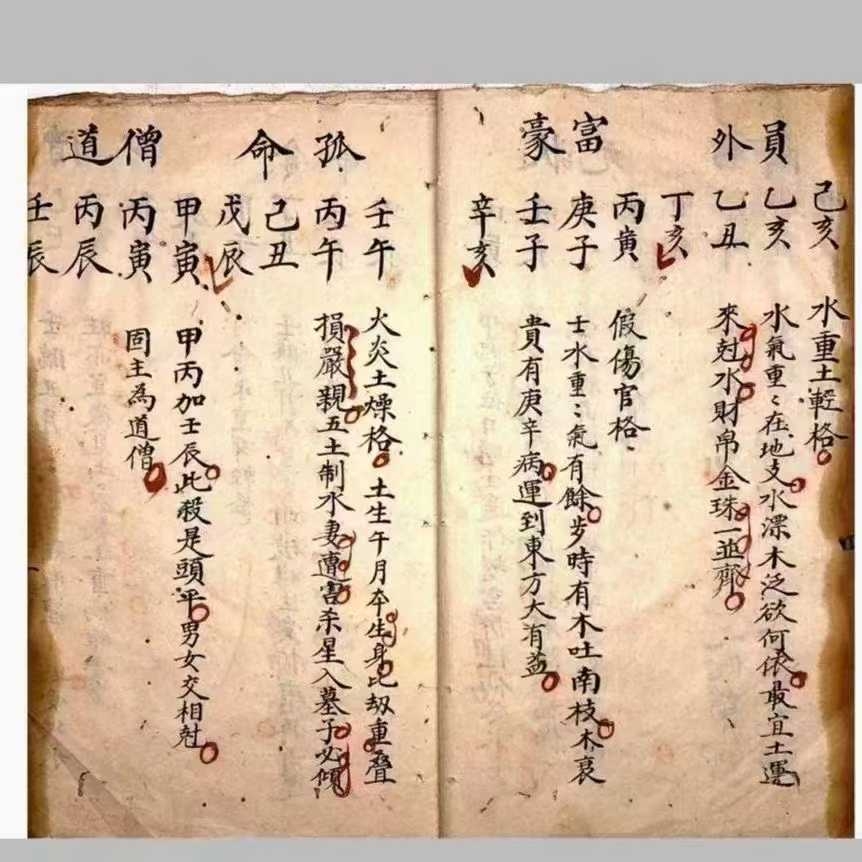 員外
己亥 水重土輕格
乙亥 水氣重〻在地支水漂木泛欲何依最宜土運
乙丑 來尅水財帛金珠一並齊
丁亥
富豪
丙寅 假傷官格
庚子 士水重〻氣有餘步時有木吐南枝木衰
壬子 貴有庚辛病運到東方大有益
辛亥
孤命
壬午 火炎土燥格 土生午月夲生身比刼重叠
丙午 損嚴親五土制水妻遭害杀星入墓子必傾
己丑
戊辰
僧道
甲寅 甲丙加壬辰此殺是頭平男女交相尅
丙寅 固主為道僧
丙辰
壬辰